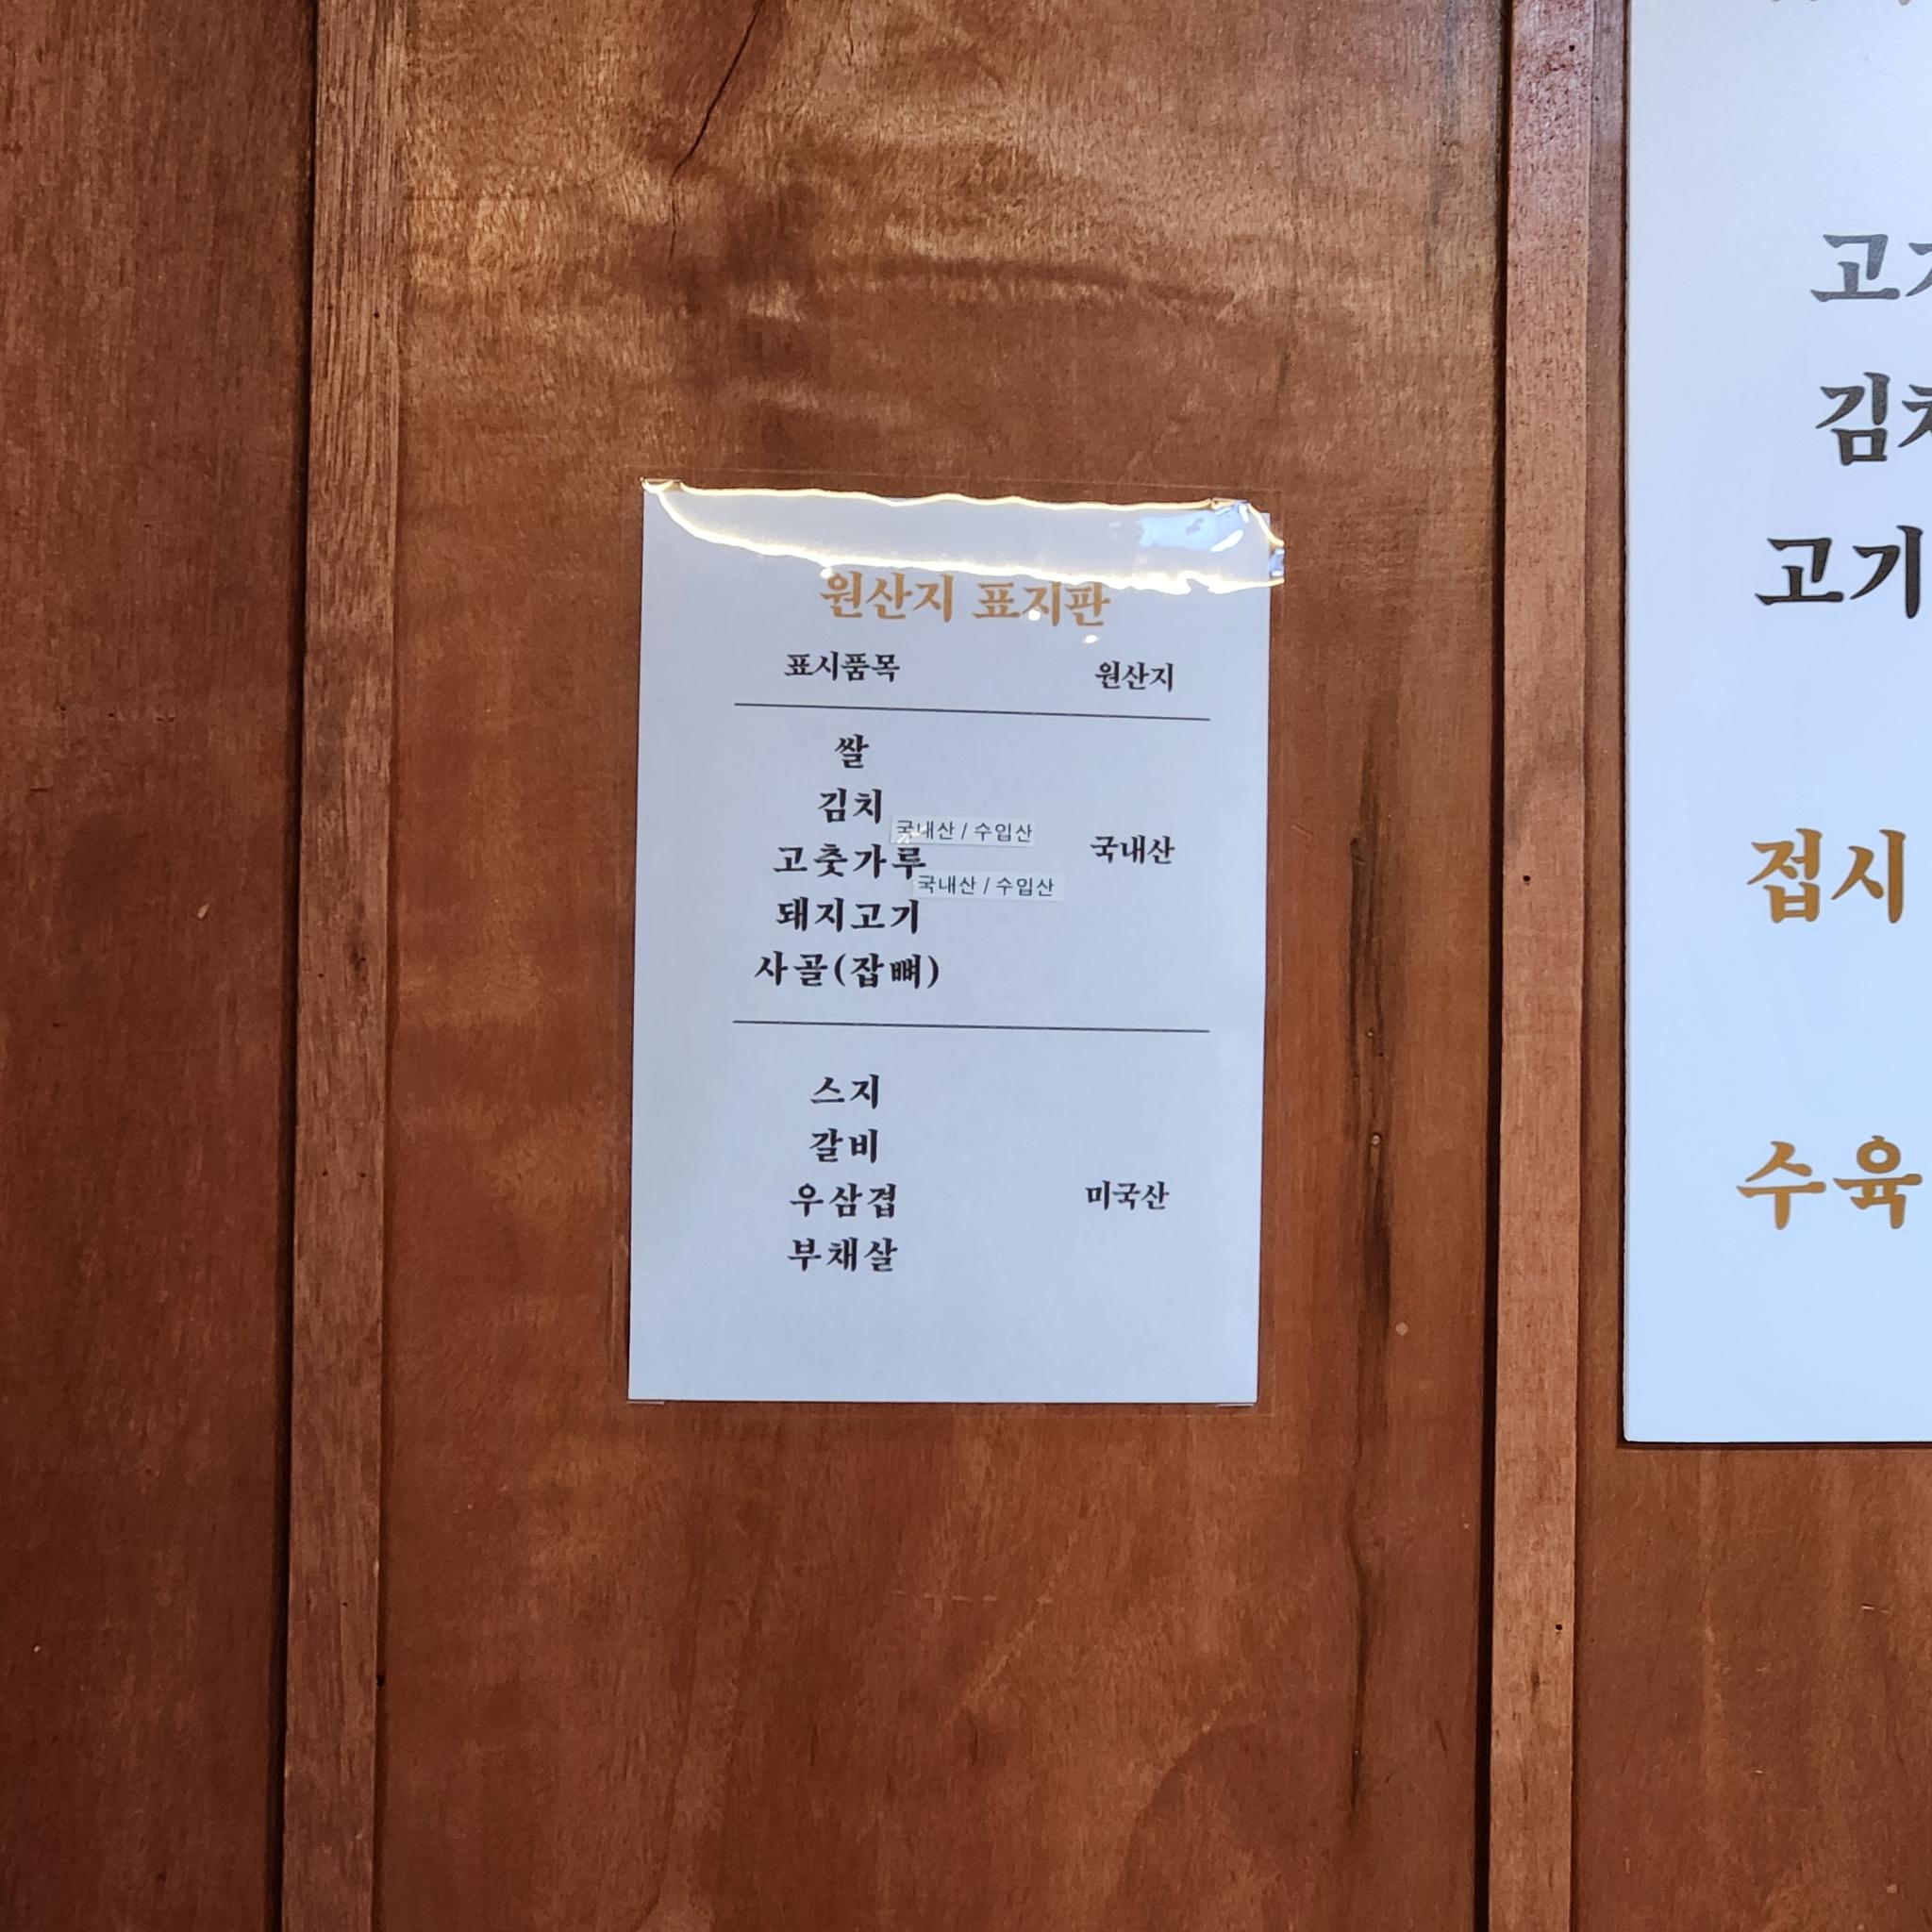 원산지 표지판
표시품목 원산지
쌀
김치
국내산 / 수입산
고춧가루
국내산
국내산 / 수입산
돼지고기
사골(잡뼈)
스지
갈비
우삼겹
미국산
부채살
고기
접시
수육